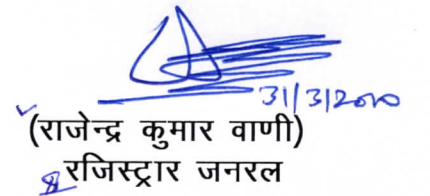 31/3/2010
(राजेन्द्र कुमार वाणी)
रजिस्ट्रार जनरल